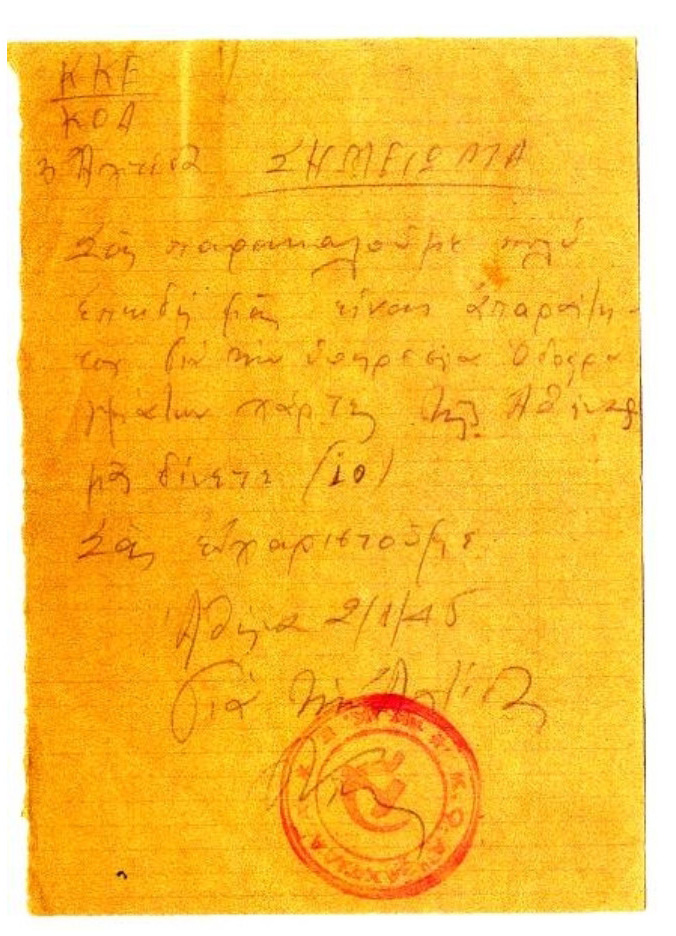 ΚΚΕ
ΚΟΑ
3 Αχτίδα ΣΗΜΕΙΩΜΑ
Σᾶς παρακαλοῦμε πολύ
ἐπειδή μᾶς εἶναι ἀπαραίτη-
τοι διά την ὑπηρεσία
χάρτες της Ἀθήνας
μᾶς δίνετε (10)
Σᾶς εὐχαριστοῦμε
Ἀθήνα 2/1/45
Γιά την Ἀχτίδα